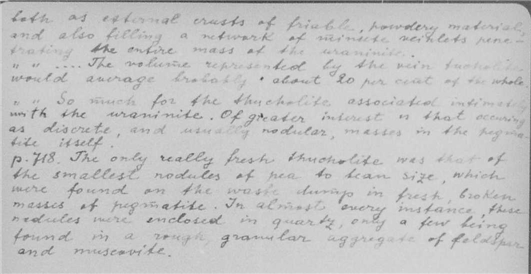 both as external crusts of friable, powdery material,
and also filling a network of minute veinlets pene-
trating the entire mass of the uraninite.
" " .... The volume represented by the vein tucholite
would average probably about 20 per cent of the whole.
" " So much for the thucholite associated intimately
with the uraninite. Of greater interest is that occurring
as discrete, and usually nodular, masses in the pegma-
tite itself.
p. 718. The only really fresh thucholite was that of
the smallest nodules of pea to bean size, which
were found on the waste dump in fresh, broken
masses of pegmatite. In almost every instance, these
nodules were enclosed in quartz, only a few being
found in a rough granular aggregate of feldspar
and muscovite.